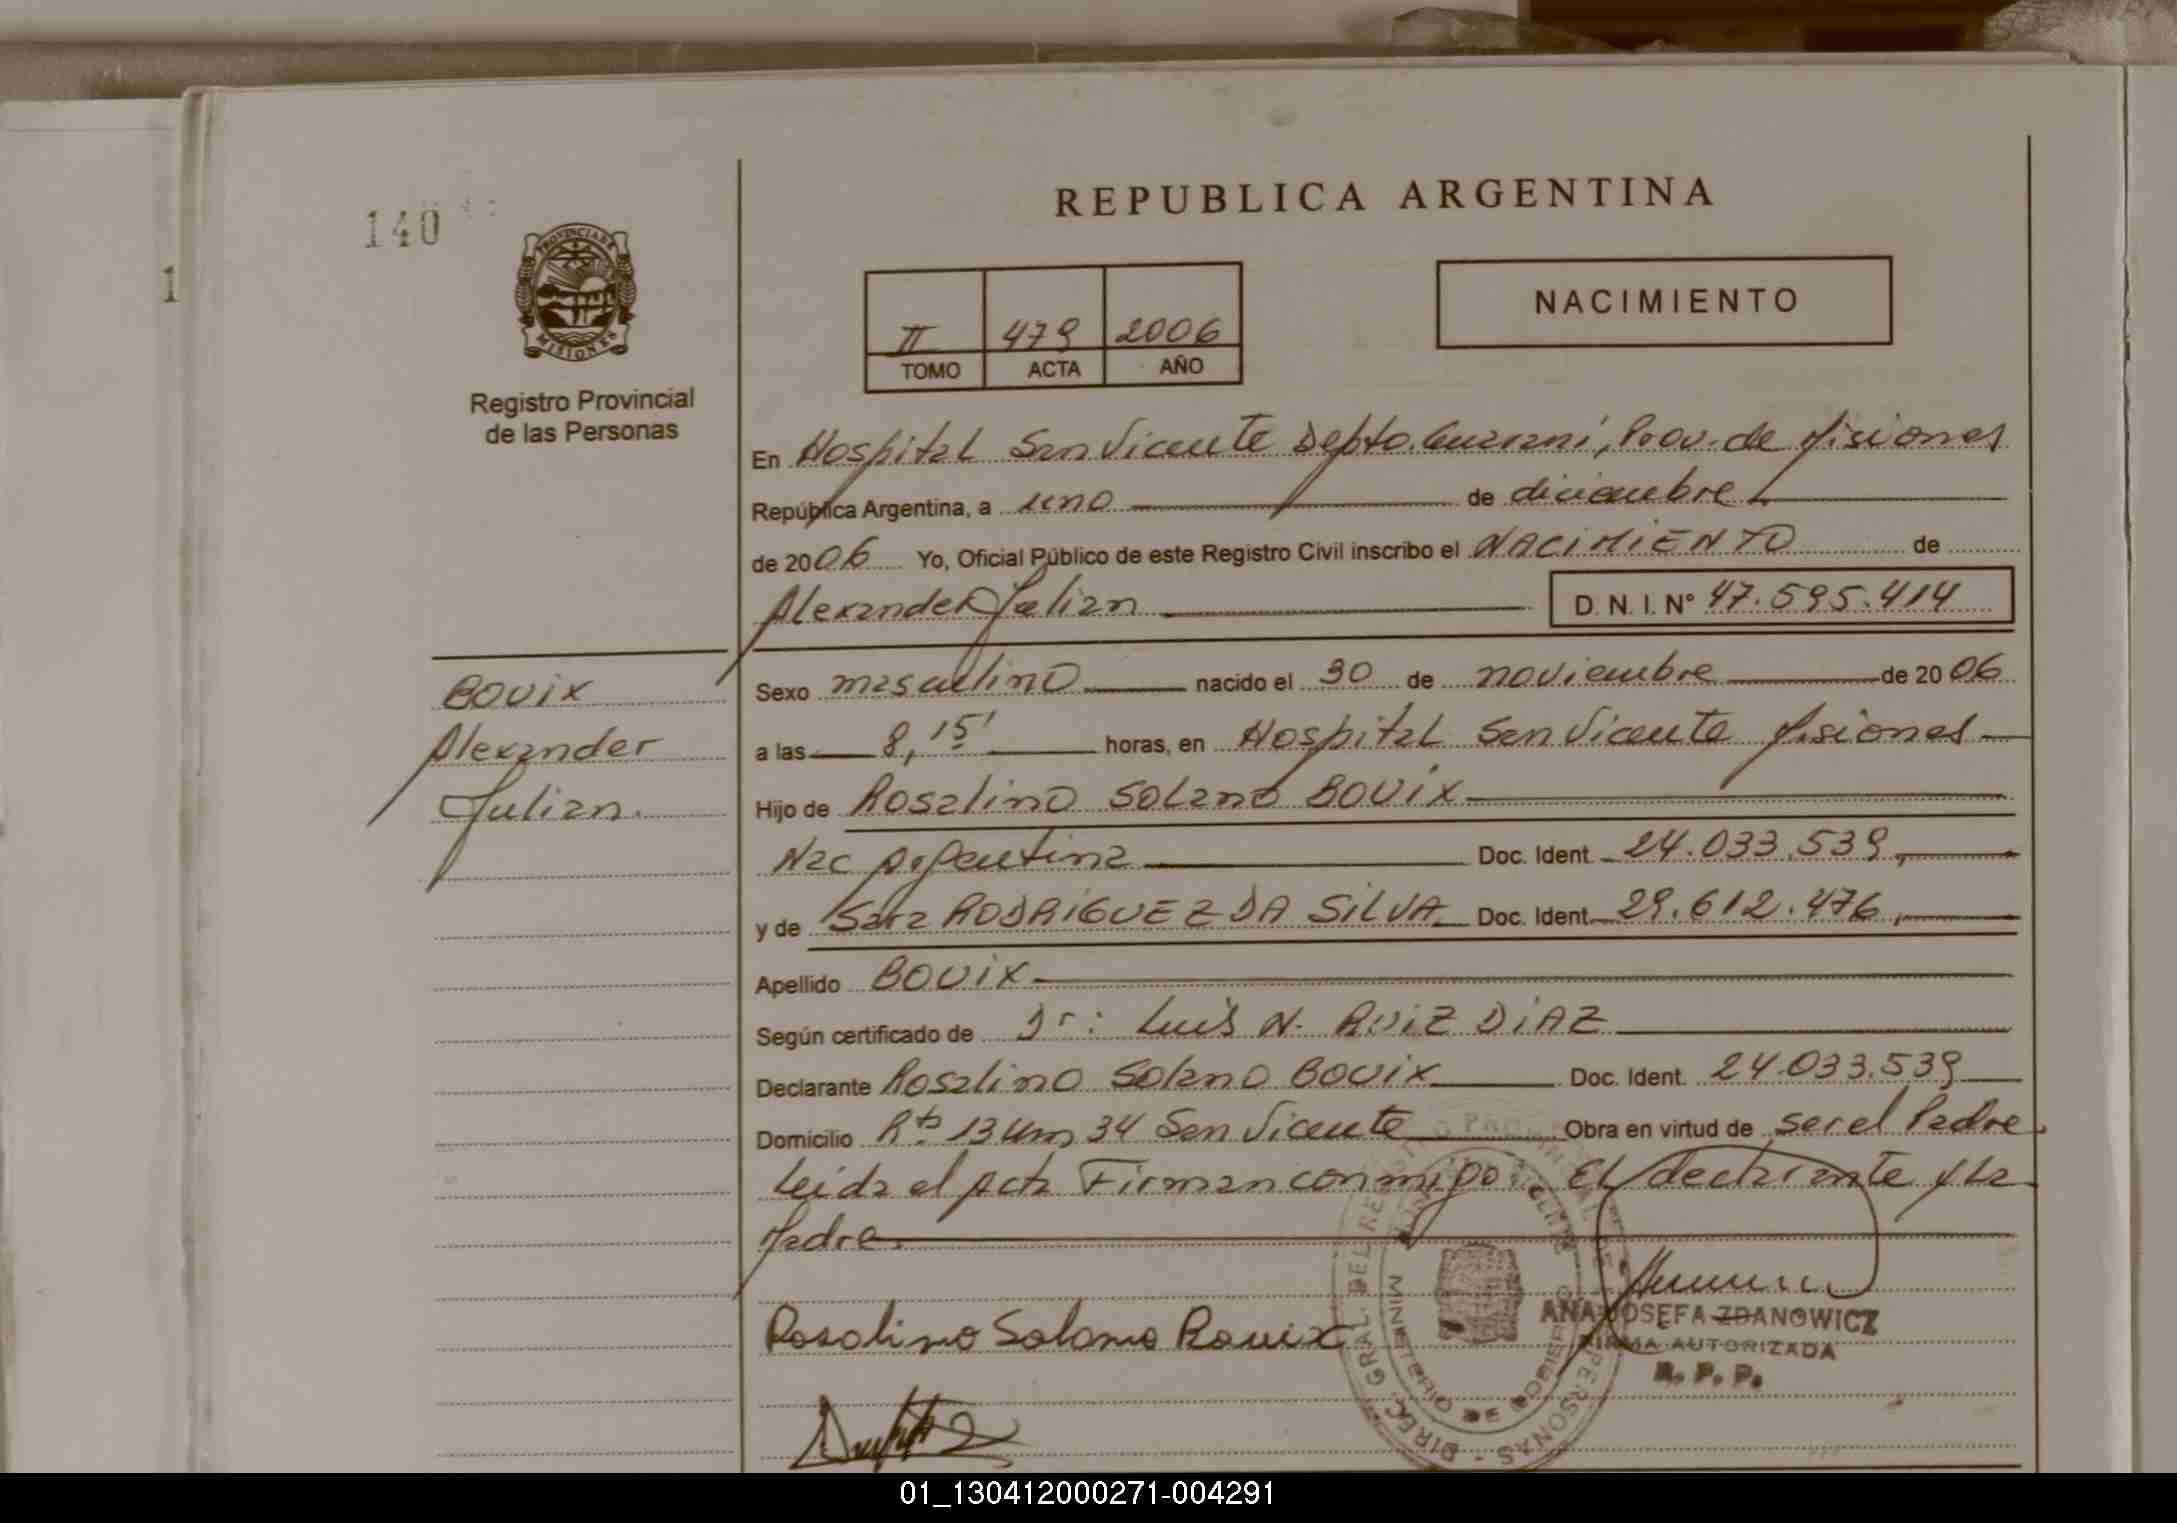 140
1
PROVINCIA DE
MISIONES
Registro Provincial
de las Personas
REPUBLICA ARGENTINA
II 479 2006
TOMO ACTA AÑO
NACIMIENTO
En Hospital San Vicente Depto. Guarani, Prov. de Misiones
República Argentina, a uno de diciembre
de 2006 Yo, Oficial Público de este Registro Civil inscribo el NACIMIENTO de
Alexander Julian D. N. I. Nº 47.595.414
BOUIX
Alexander
Julian.
Sexo masculino nacido el 30 de noviembre de 2006
a las 8,15' horas, en Hospital San Vicente Misiones
Hijo de Rosalino Solano BOUIX
Nac Argentina Doc. Ident. 24.033.539,
y de Sara RODRIGUEZ DA SILVA Doc. Ident. 29.612.476,
Apellido BOUIX
Según certificado de Dr: Luis N. RUIZ DIAZ
Declarante Rosalino Solano BOUIX Doc. Ident. 24.033.539
Domicilio Rta 13 Km 34 San Vicente Obra en virtud de ser el Padre.
Leida el Acta Firman conmigo: El declarante y La
Madre.
Rosalino Solano Bouix
DIREC. GRAL. DEL PERSONAS
MINISTERIO DE GOBIERNO
ANA JOSEFA ZDANOWICZ
FIRMA AUTORIZADA
R. P. P.
01_130412000271-004291